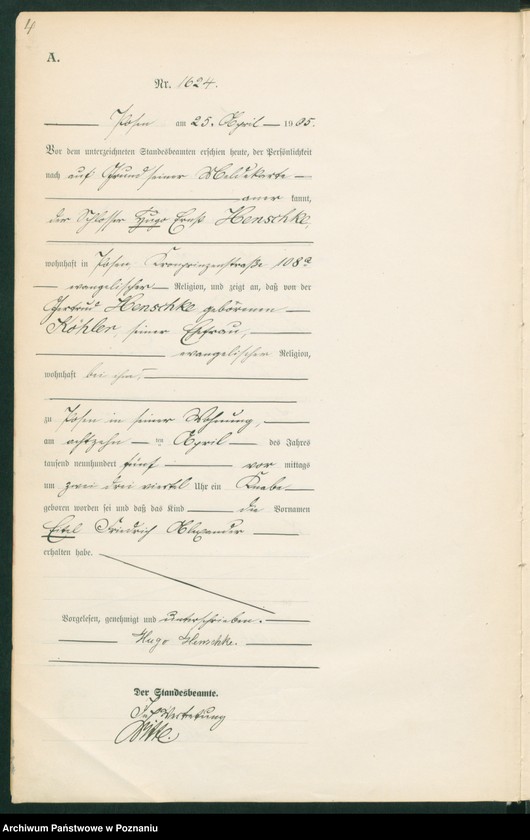 4
A.
Nr. 1624.
Posen am 25. April 1905.
Vor dem unterzeichneten Standesbeamten erschien heute, der Persönlichkeit
nach auf Grund seiner Meldekarte
aner kannt,
der Schlosser Hugo Ernst Henschke,
wohnhaft in Posen, Kronprinzenstraße 108a
evangelischer Religion, und zeigt an, daß von der
Gertrud Henschke geborenen
Köhler, seiner Ehefrau,
evangelischer Religion,
wohnhaft bei ihm,
zu Posen in seiner Wohnung,
am achtzehn ten April des Jahres
tausend neunhundert fünf vor mittags
um zwei drei viertel Uhr ein Knabe
geboren worden sei und daß das Kind die Vornamen
Eitel Friedrich Alexander
erhalten habe.
Vorgelesen, genehmigt und unterschrieben.
Hugo Henschke.
Der Standesbeamte.
In Vertretung
Archiwum Państwowe w Poznaniu